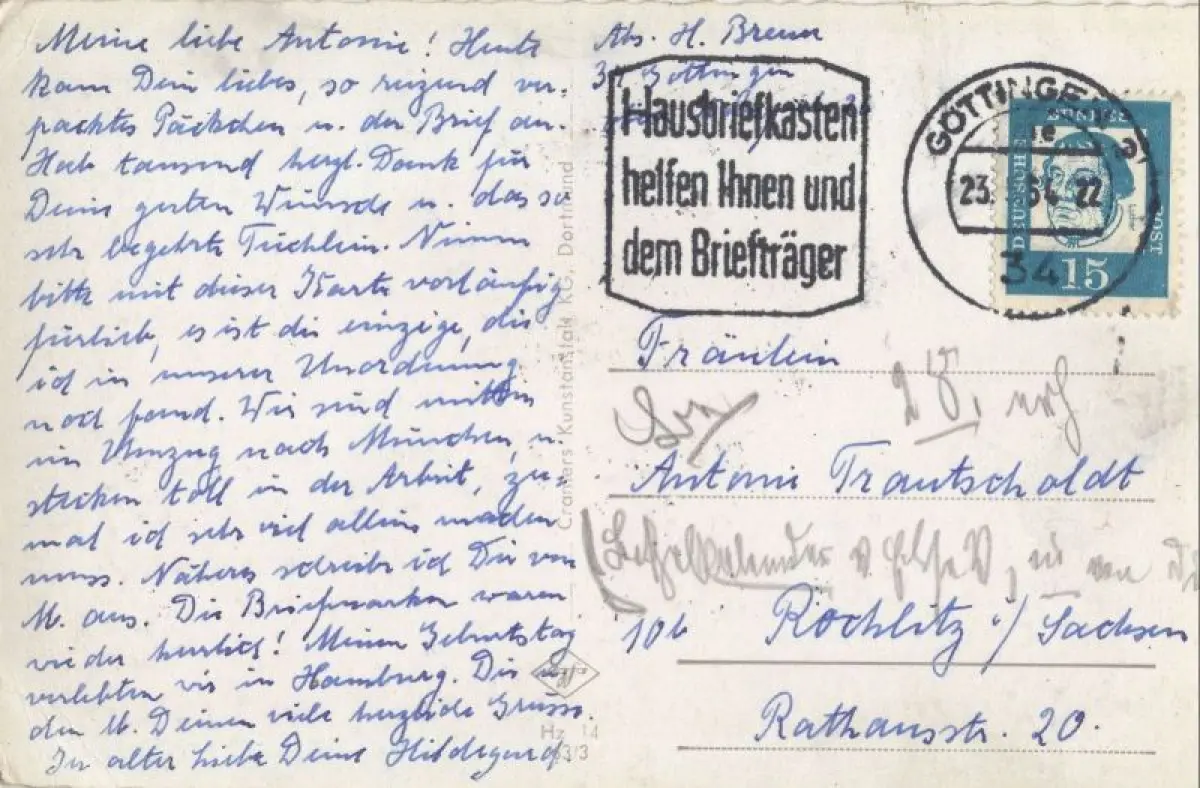 Meine liebe Antonie! Heute
kam Dein liebes, so reizend ver-
packtes Päckchen u. der Brief an.
Hab tausend herzl. Dank für
Deine guten Wünsche u. das so
sehr begehrte Tüchlein. Nimm
bitte mit dieser Karte vorläufig
fürlieb, es ist die einzige, die
ich in unserer Unordnung
noch fand. Wir sind mitten
im Umzug nach München, u.
stecken toll in der Arbeit, zu-
mal ich sehr viel allein machen
muss. Näheres schreib ich Dir von
M. aus. Die Briefmarken waren
wieder herrlich! Meinen Geburtstag
verlebten wir in Hamburg. Dir u.
den M. Deinen viele herzliche Grüsse.
In alter Liebe Deine Hildegard
Cramers Kunstanstalt KG, Dortmund
Hz 14
Abs. H. Breuer
34 Göttingen
Hausbriefkasten
helfen Ihnen und
dem Briefträger
GÖTTINGEN
23. 64 22
34
DEUTSCHE
BUNDES
POST
Luther
15
Fräulein
Antonie Trautscholdt
10b Rochlitz i/Sachsen
Rathausstr. 20.